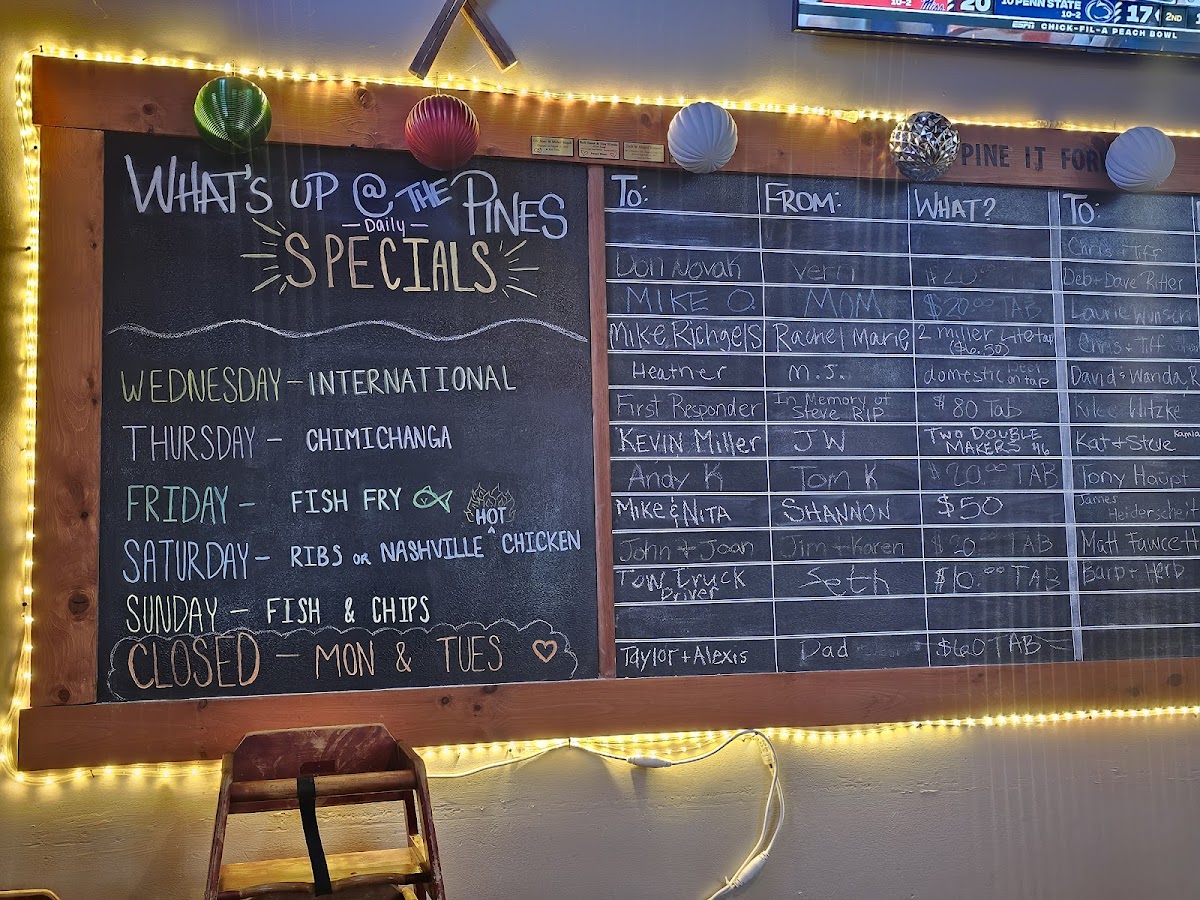 20 10 PENN STATE 17 2ND
10-2 10-2
ESPN CHICK-FIL-A PEACH BOWL
PINE IT FOR
WHAT'S UP @ THE PINES
-Daily-
SPECIALS
WEDNESDAY - INTERNATIONAL
THURSDAY - CHIMICHANGA
FRIDAY - FISH FRY
HOT
SATURDAY - RIBS OR NASHVILLE ^ CHICKEN
SUNDAY - FISH & CHIPS
CLOSED - MON & TUES
TO: FROM: WHAT? TO:
Chris + Tiff
Don Novak Deb + Dave Ritter
MIKE O. MOM $20.00 TAB Laurie
Mike Richgels Rachel Marie 2 miller Lite tap Chris + Tiff
($6.50)
Heather M.J. domestic beer on tap David & Wanda R
First Responder In Memory of Steve RIP $80 Tab Witzke
KEVIN Miller JW TWO DOUBLE MAKERS #6 Kat & Steve
Andy K Tom K $20.00 TAB Tony Haupt
MIKE & NITA SHANNON $50 James Heiderscheit
John + Joan Jim + Karen $20 TAB Matt Fawcett
TOW TRUCK Driver Seth $10.00 TAB Barb + Herb
Taylor + Alexis Dad $60 TAB